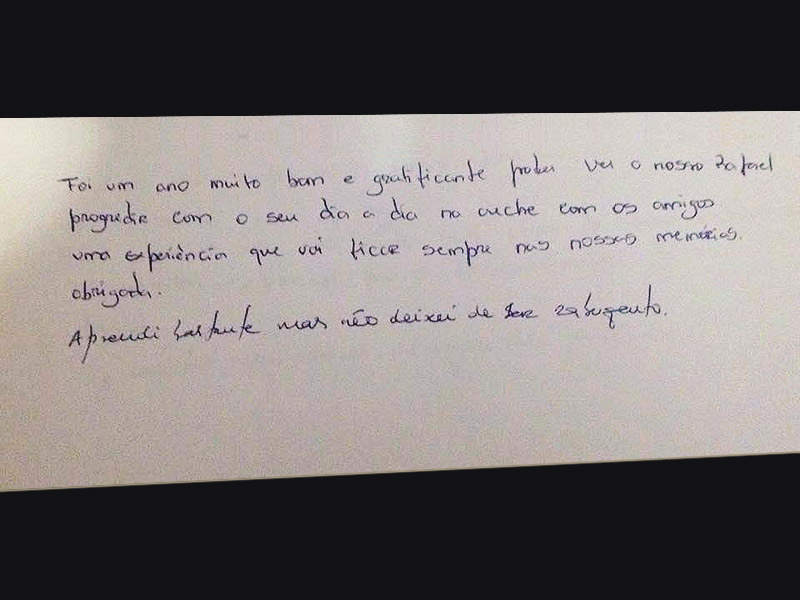 Foi um ano muito bom e gratificante poder ver o nosso Rafael
progredir com o seu dia a dia na creche com os amigos.
uma experiência que vai ficar sempre nas nossas memórias.
obrigada.
Aprendi bastante mas não deixei de ser rabugento.